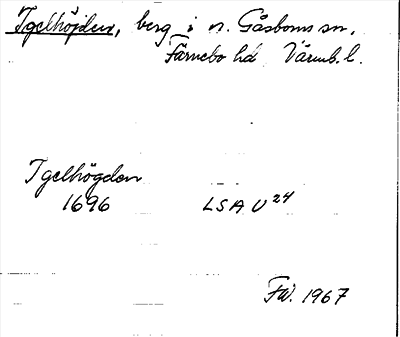 Igelhöjden, berg i n. Gåsborns sn,
Färnebo hd Värml. l.
Igelhögden
1696 LSA U 24
FW. 1967